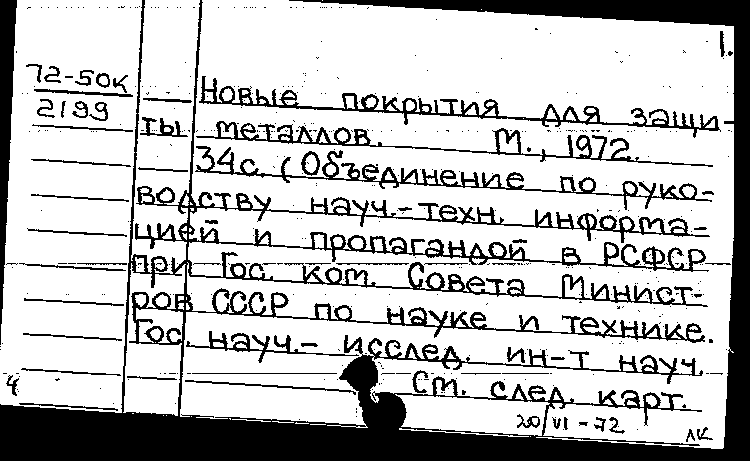 1.
72-50к
2199
Новые покрытия для защи-
ты металлов. М., 1972.
34с. (Объединение по руко-
водству науч.-техн. информа-
цией и пропагандой в РСФСР
при Гос. ком. Совета Минист-
ров СССР по науке и технике.
Гос. науч.- исслед. ин-т науч.
См. след. карт.
4
20/VI-72
ЛК